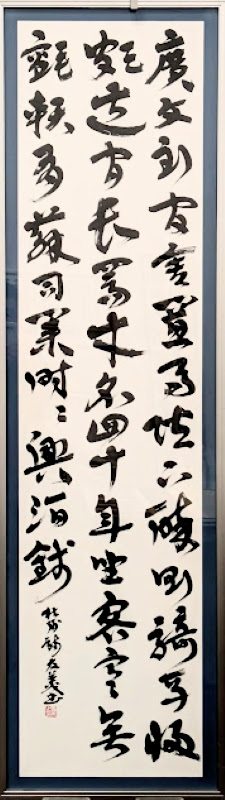 廣文到官舍置馬階下醉則騎馬歸
頗遭官長罵才名四十年坐客寒無
氈賴有蘇司業時〻與酒錢
杜甫詩